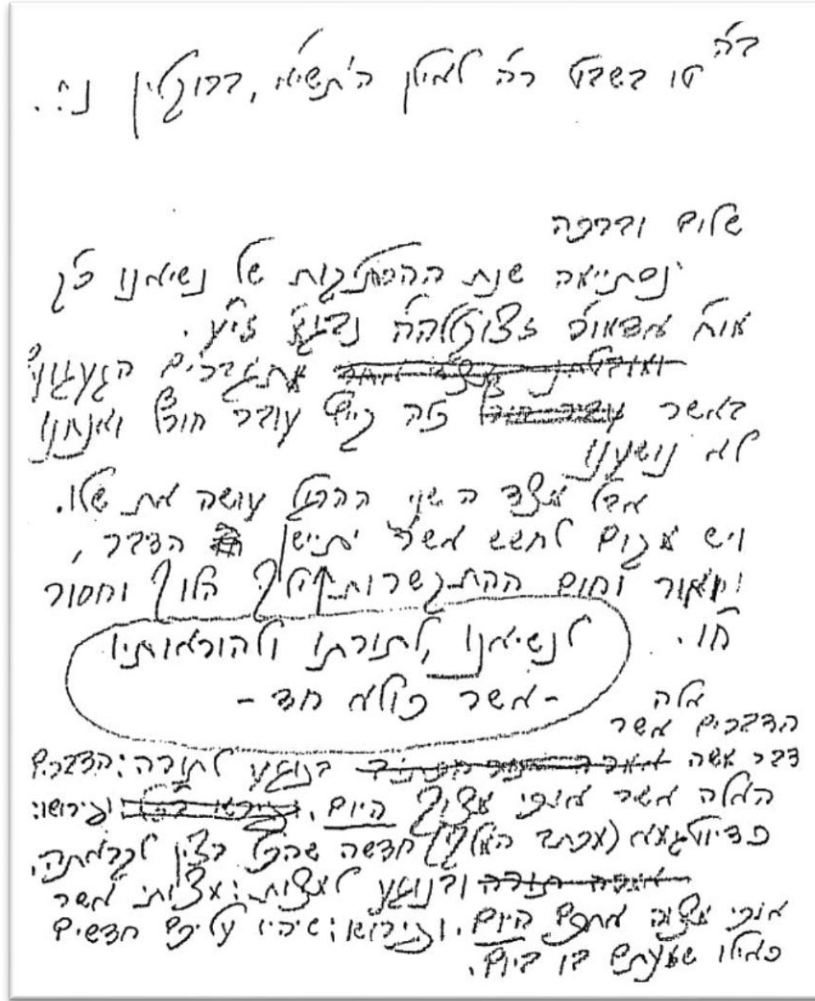 ב"ה
טו בשבט ר"ה לאילן ה'תשי"א, ברוקלין נ.י.
שלום וברכה
נסתיימה שנת ההסתלקות של נשיאנו כ"ק
מו"ח אדמו"ר זצוקללה"ה נבג"מ זי"ע.
מתגברים הגעגועים
באשר זה קיץ עובר חורף ואנחנו
לא נושענו
אבל מצד השני ההרגל עושה את שלו.
ויש מקום לחשש אשר יתיישן הדבר,
ואור וחום ההתקשרות ילך הלוך וחסור
ח"ו.
לנשיאנו, לתורתו ולהוראותיו
- אשר כולא חד -
אלה
הדברים אשר
דבר משה בנוגע לתורה: הדברים
האלה אשר אנכי מצוך היום. ופירושו:
כדיוטגמא (מכתב המלך) חדשה שהכל רצין לקראתה,
ובנוגע למצות: מצותי אשר
אנכי מצוה אתכם היום. ופירושו: שיהיו עליכם חדשים
כאילו שמעתם בו ביום.